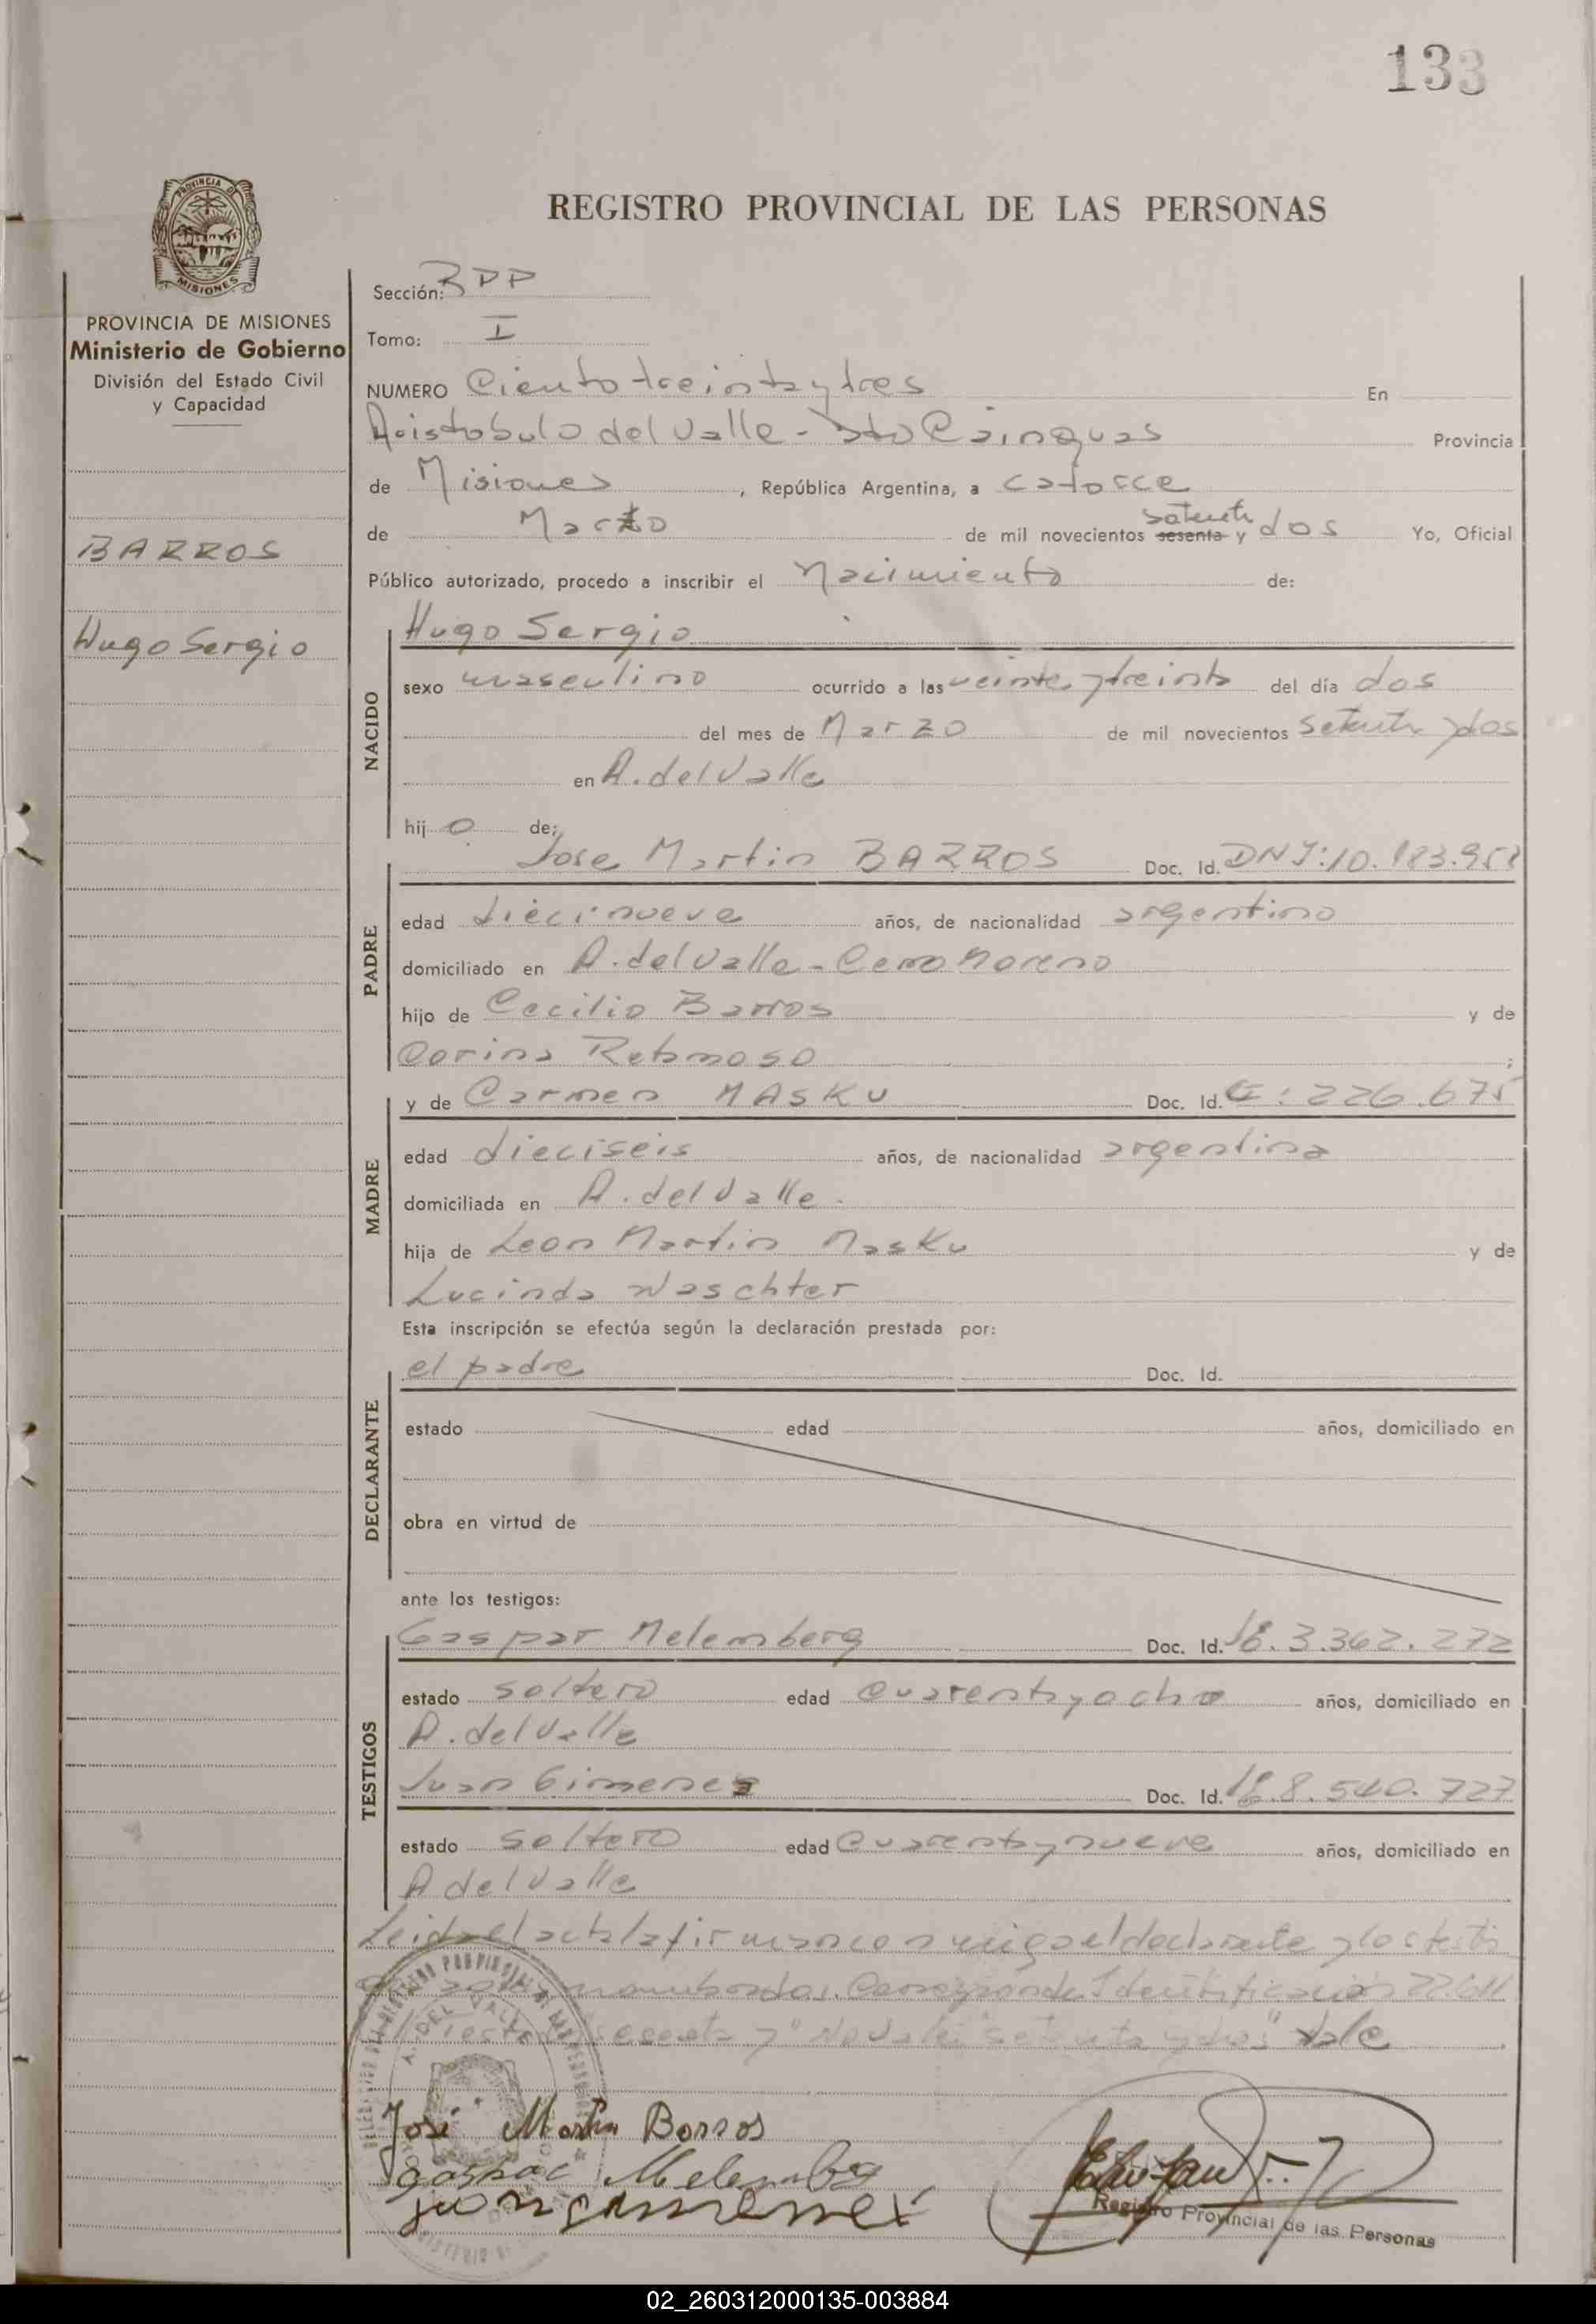 133
PROVINCIA DE
MISIONES
REGISTRO PROVINCIAL DE LAS PERSONAS
PROVINCIA DE MISIONES
Ministerio de Gobierno
División del Estado Civil
y Capacidad
BARROS
Hugo Sergio
Sección:
Tomo: I
NUMERO Ciento treinta y tres En
Aristobulo del Valle - Dto Cainguas Provincia
de Misiones, República Argentina, a catorce
de Marzo de mil novecientos sesenta y setenta dos Yo, Oficial
Público autorizado, procedo a inscribir el Nacimiento de:
NACIDO
Hugo Sergio
sexo masculino ocurrido a las veinte y treinta del día dos
del mes de Marzo de mil novecientos setenta y dos
en A. del Valle
hijo de:
PADRE
Jose Martin BARROS Doc. Id. DNI: 10.183.958
edad diecinueve años, de nacionalidad argentino
domiciliado en A. del Valle - Cerro Moreno
hijo de Cecilio Barros y de
Corina Retamoso ;
MADRE
y de Carmen MASKU Doc. Id. C: 226.675
edad dieciseis años, de nacionalidad argentina
domiciliada en A. del Valle.
hija de Leon Martin Masku y de
Lucinda Waschter
Esta inscripción se efectúa según la declaración prestada por:
DECLARANTE
el padre Doc. Id.
estado edad años, domiciliado en
obra en virtud de
ante los testigos:
TESTIGOS
Gaspar Melemberg Doc. Id. 3.362.272
estado soltero edad cuarenta y ocho años, domiciliado en
A. del Valle
Juan Gimenez Doc. Id. 8.540.727
estado soltero edad cuarenta y nueve años, domiciliado en
A del Valle
Leida el acta la firman conmigo el declarante y los testi
gos nombrados. Corresponde Identificación
"sesenta y" No Vale "setenta y dos" Vale
A. DEL VALLE
José Martin Barros
Gaspar Melemberg
juan gimenez
Registro Provincial de las Personas
02_260312000135-003884